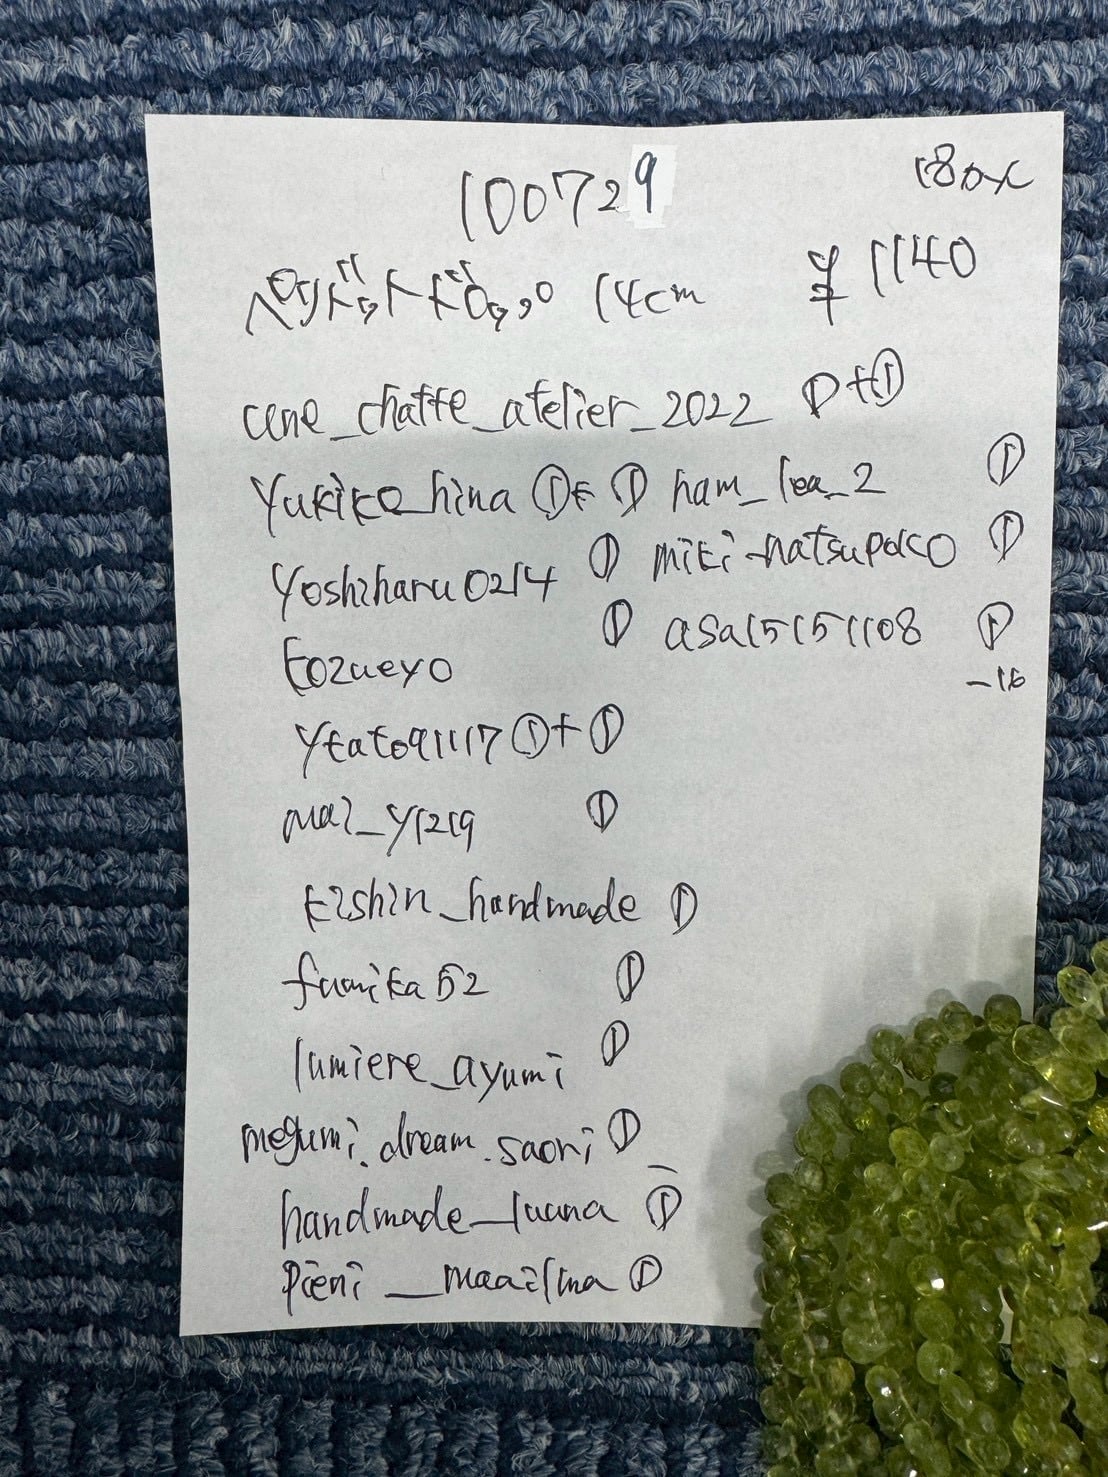 100729
180x
ペリドットドロップ 14cm ¥1140
cene_chatte_atelier_2022 ①+①
Yukiko_hina ①+① ham_lea_2 ①
yoshiharu0214 ① miki-natsupoco ①
kozueyo ① asa15151108 ①
-16
ykato91117 ①+①
mai_y1219 ①
kishin_handmade ①
fumika52 ①
lumiere_ayumi ①
megumi.dream.saori ①
handmade_luana ①
pieni__maailma ①